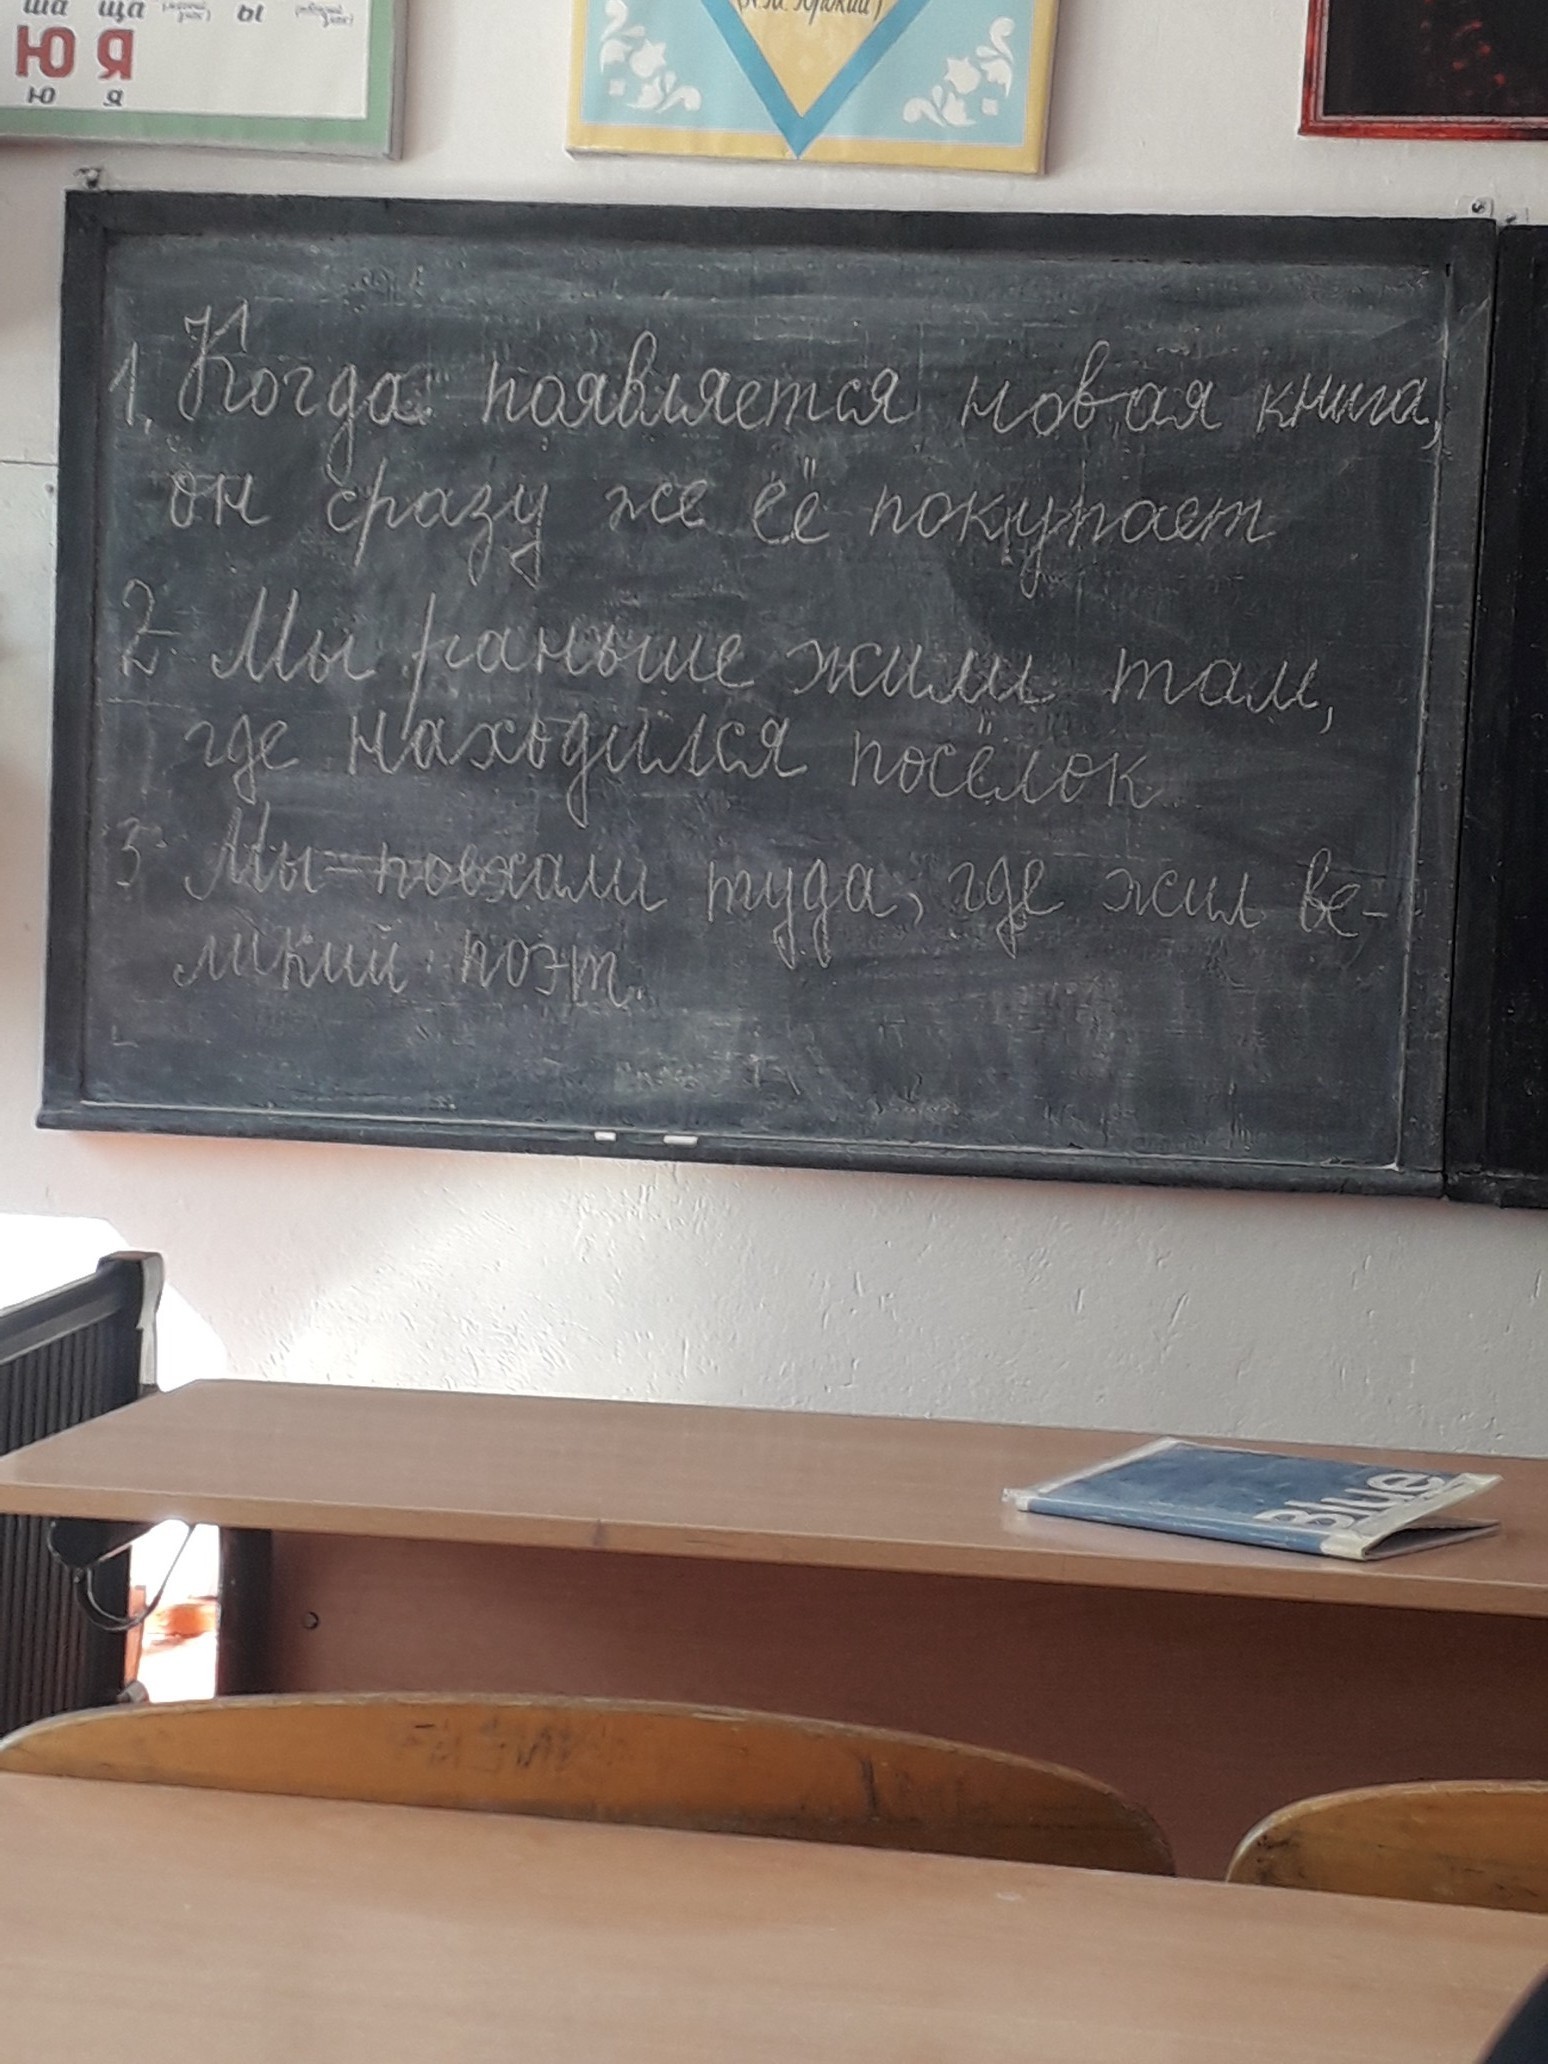 ша ща ы
Ю Я
ю я
1. Когда появляется новая книга,
он сразу же её покупает
2 Мы раньше жили там,
где находился посёлок
3 Мы поехали туда, где жил ве-
ликий поэт.
Blue